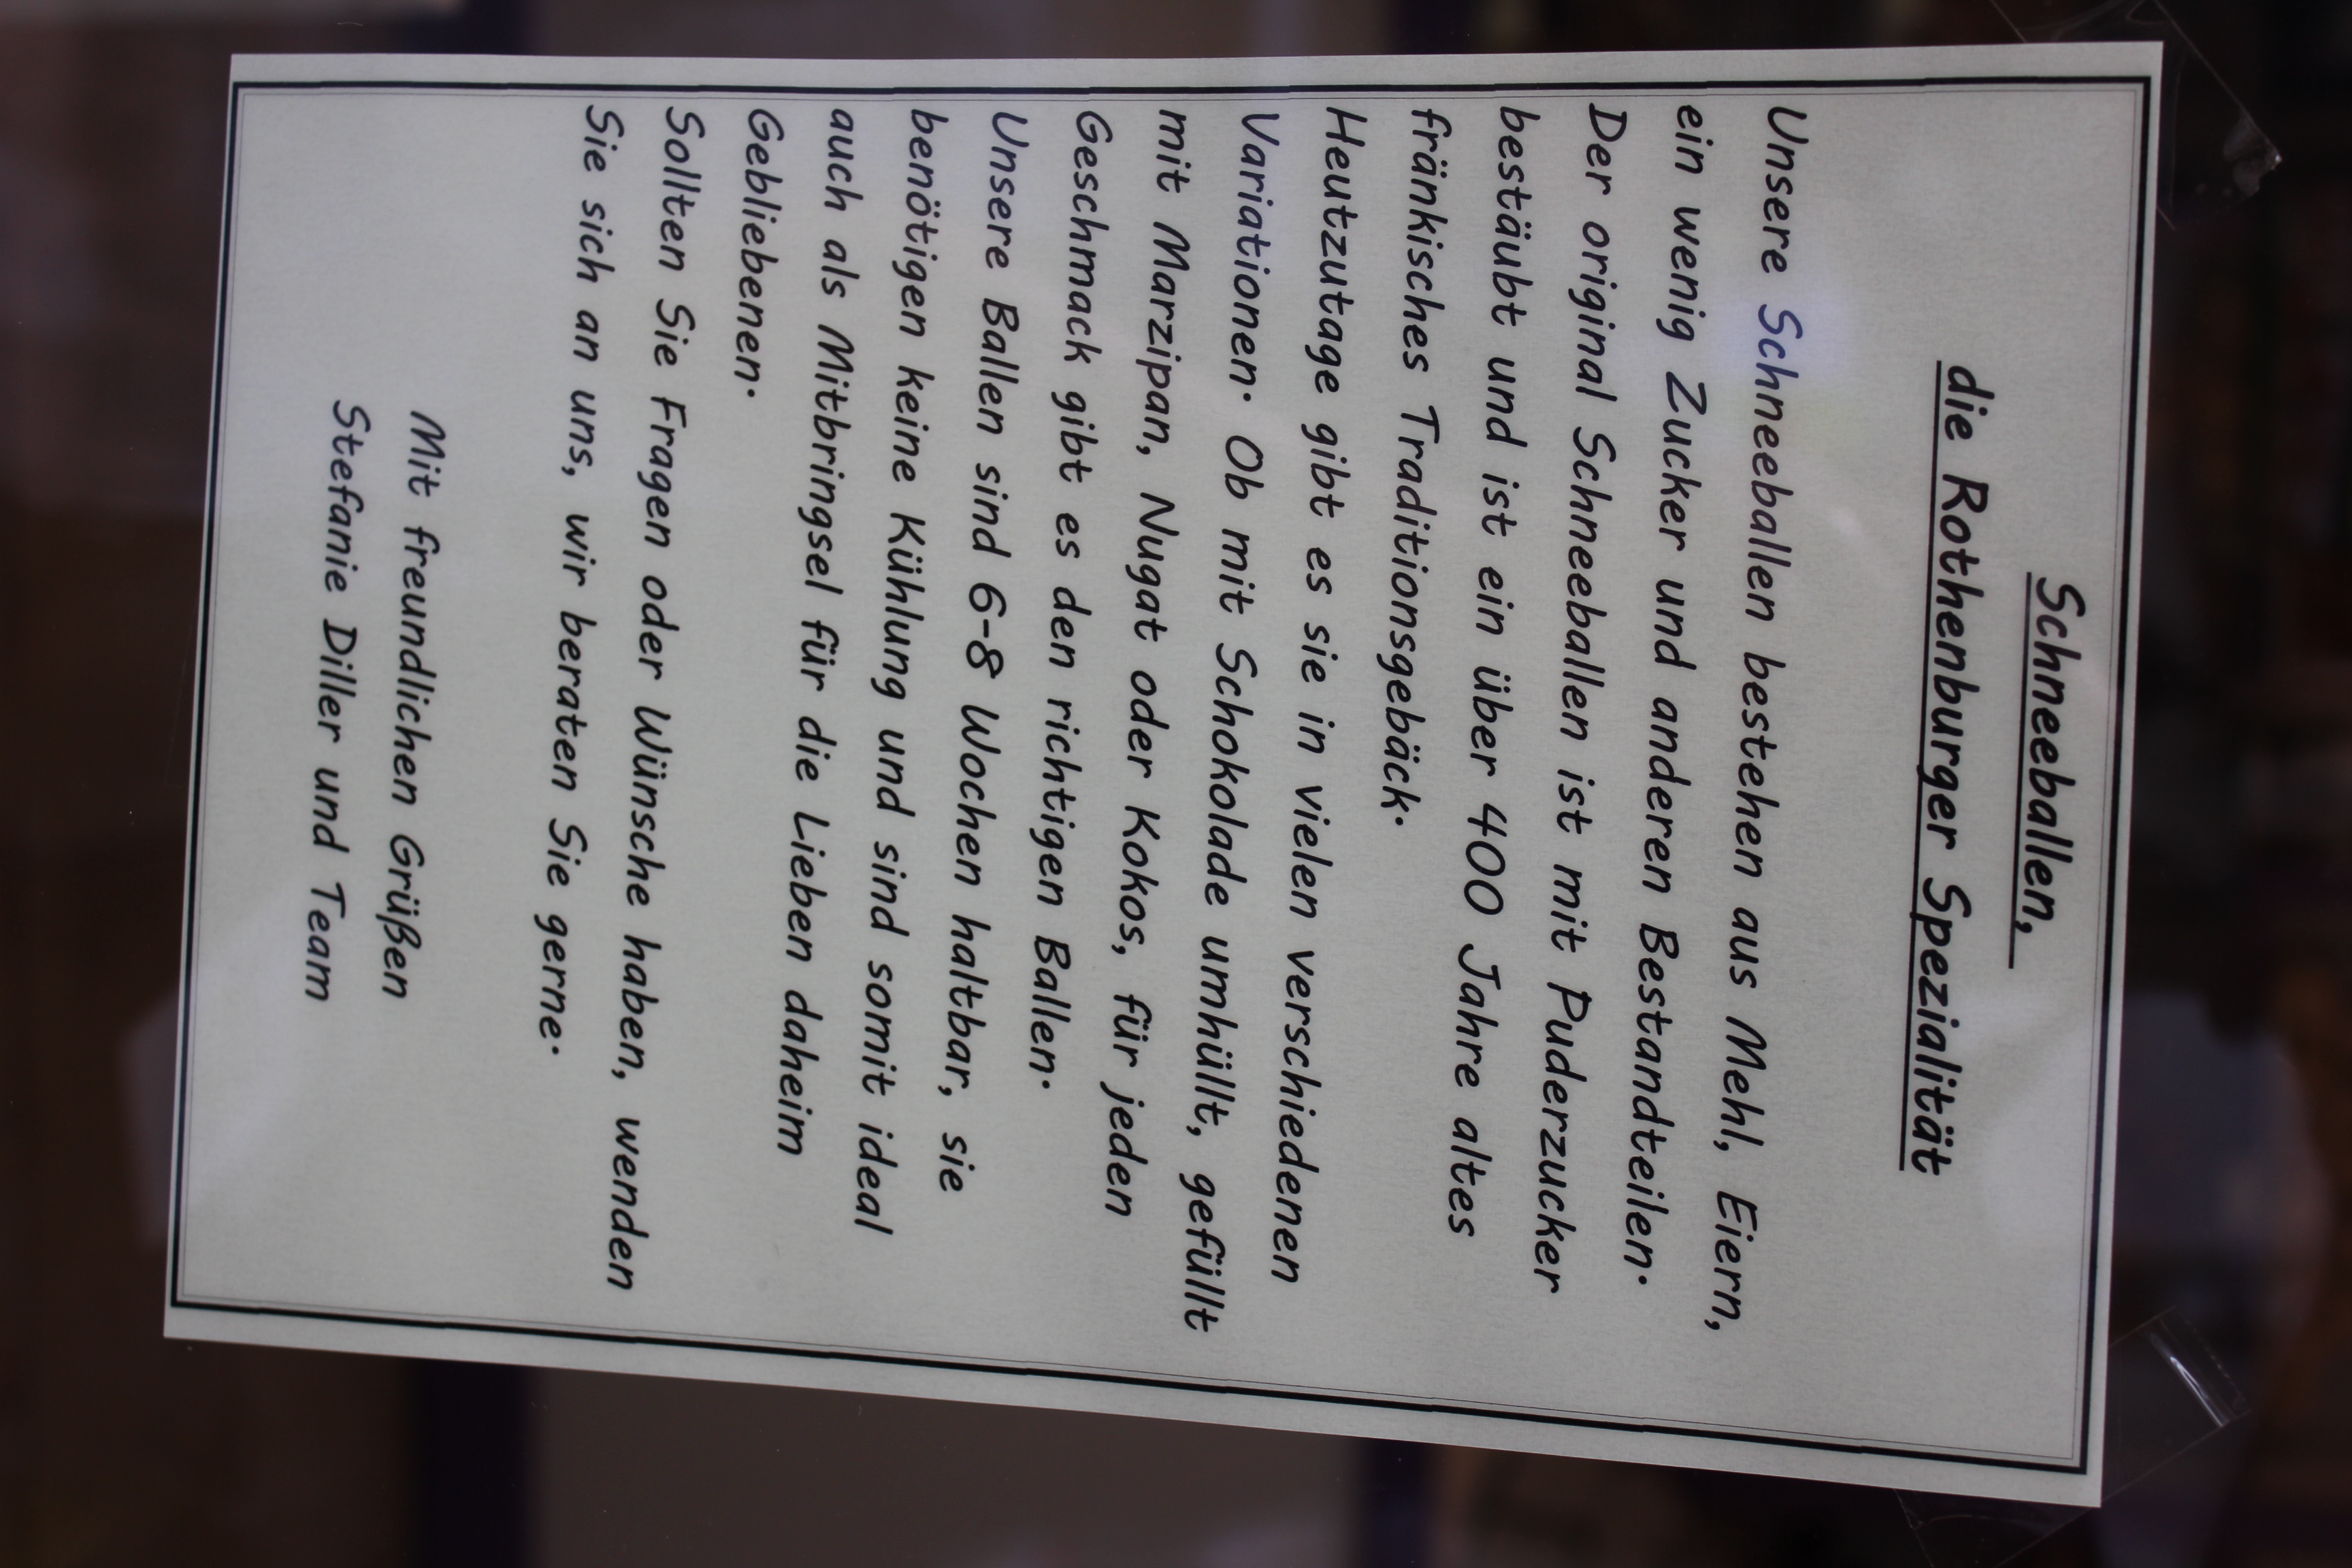 Schneeballen,
die Rothenburger Spezialität
Unsere Schneeballen bestehen aus Mehl, Eiern,
ein wenig Zucker und anderen Bestandteilen.
Der original Schneeballen ist mit Puderzucker
bestäubt und ist ein über 400 Jahre altes
fränkisches Traditionsgebäck.
Heutzutage gibt es sie in vielen verschiedenen
Variationen. Ob mit Schokolade umhüllt, gefüllt
mit Marzipan, Nugat oder Kokos, für jeden
Geschmack gibt es den richtigen Ballen.
Unsere Ballen sind 6-8 Wochen haltbar, sie
benötigen keine Kühlung und sind somit ideal
auch als Mitbringsel für die Lieben daheim
Gebliebenen.
Sollten Sie Fragen oder Wünsche haben, wenden
Sie sich an uns, wir beraten Sie gerne.
Mit freundlichen Grüßen
Stefanie Diller und Team